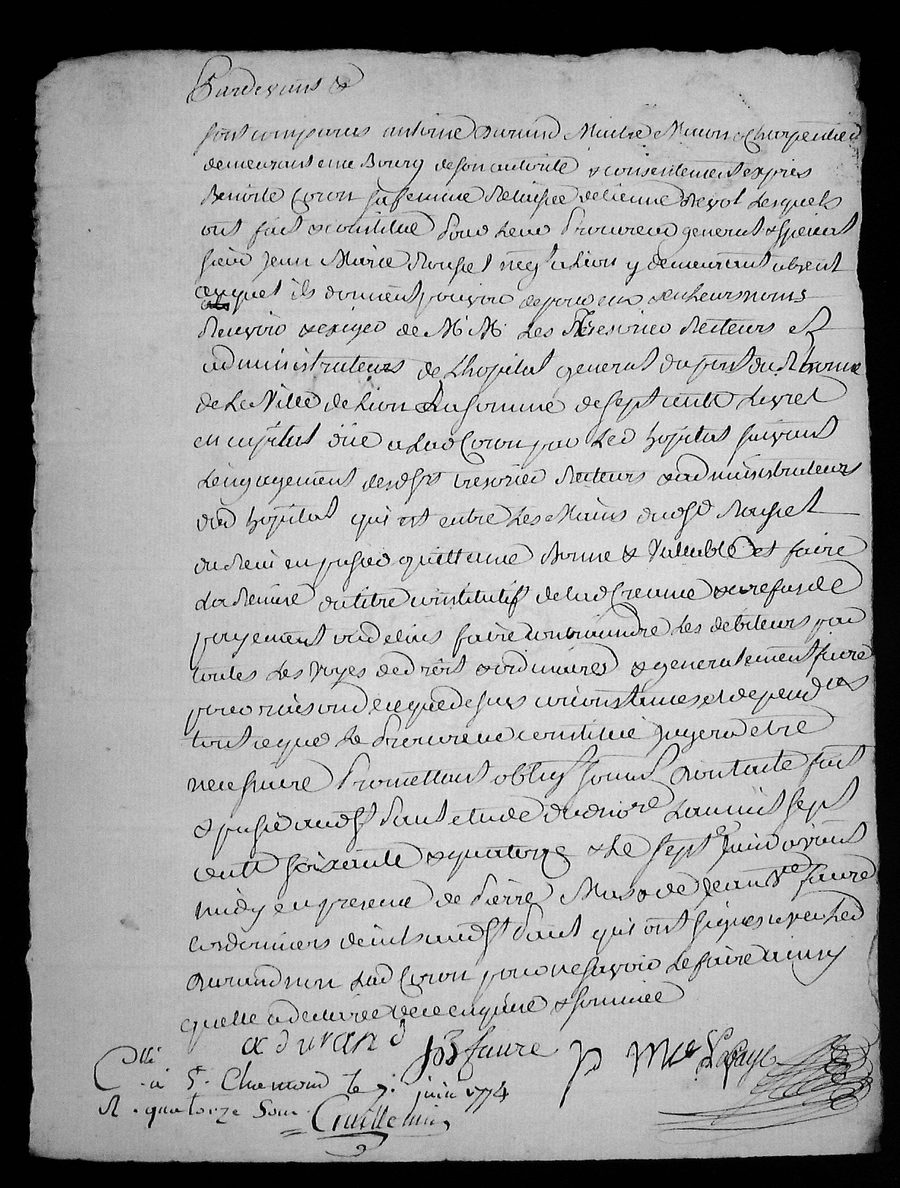 Pardevant &
sont comparus antoine Durand Maitre Maçon & Charpentier
demeurant en ce Bourg de son autorité & consentement exprès
Benoite Coron sa femme Relaissée d'etienne devot Lesquels
ont fait & constitué Pour Leur Procureur general & spécial
sieur Jean Marie Rousset negt a Lion y demeurant absent
auquel ils donnent pouvoir de pour eux & en Leurs noms
Recevoir & exiger de M.M. Les Tresorier Recteurs et
administrateurs de L'hopital general du pont du Rhone
de La Ville de Lion La somme de sept cents Livres
en capital düe a Lad Coron par Led hopital suivant
L'engagement desd srs tresorier Recteurs & administrateurs
dud hopital qui est entre Les Mains dud sr Rousset
du Reçu en passer quittance Bonne & Vallable et faire
La Remise du titre constitutif de Lad Creance & a refus de
payement ou delais faire contraindre Les debiteurs par
toutes Les Voyes de droit & ordinaires & generalement faire
pour raison de ce que dessus circonstances et dependces
tout ce que Le Procureur constitué jugera etre
necessaire Promettant oblig soumis Dont acte fait
& passé aud st Paul etude du Lan mil sept
cents soixante & quatorze & Le sept Juin avant
midy en presence de Pierre & de Jean Bte faure
Cordonniers dud st Paul qui ont signes avec Led
Durand non Lad Coron pour ne savoir Le faire ainsy
quelle a declarée de ce enquise & sommée
a durand JB faure P
Cllé
à St. Chamond le 7. juin 1774
R. quatorze sous
Guillemin